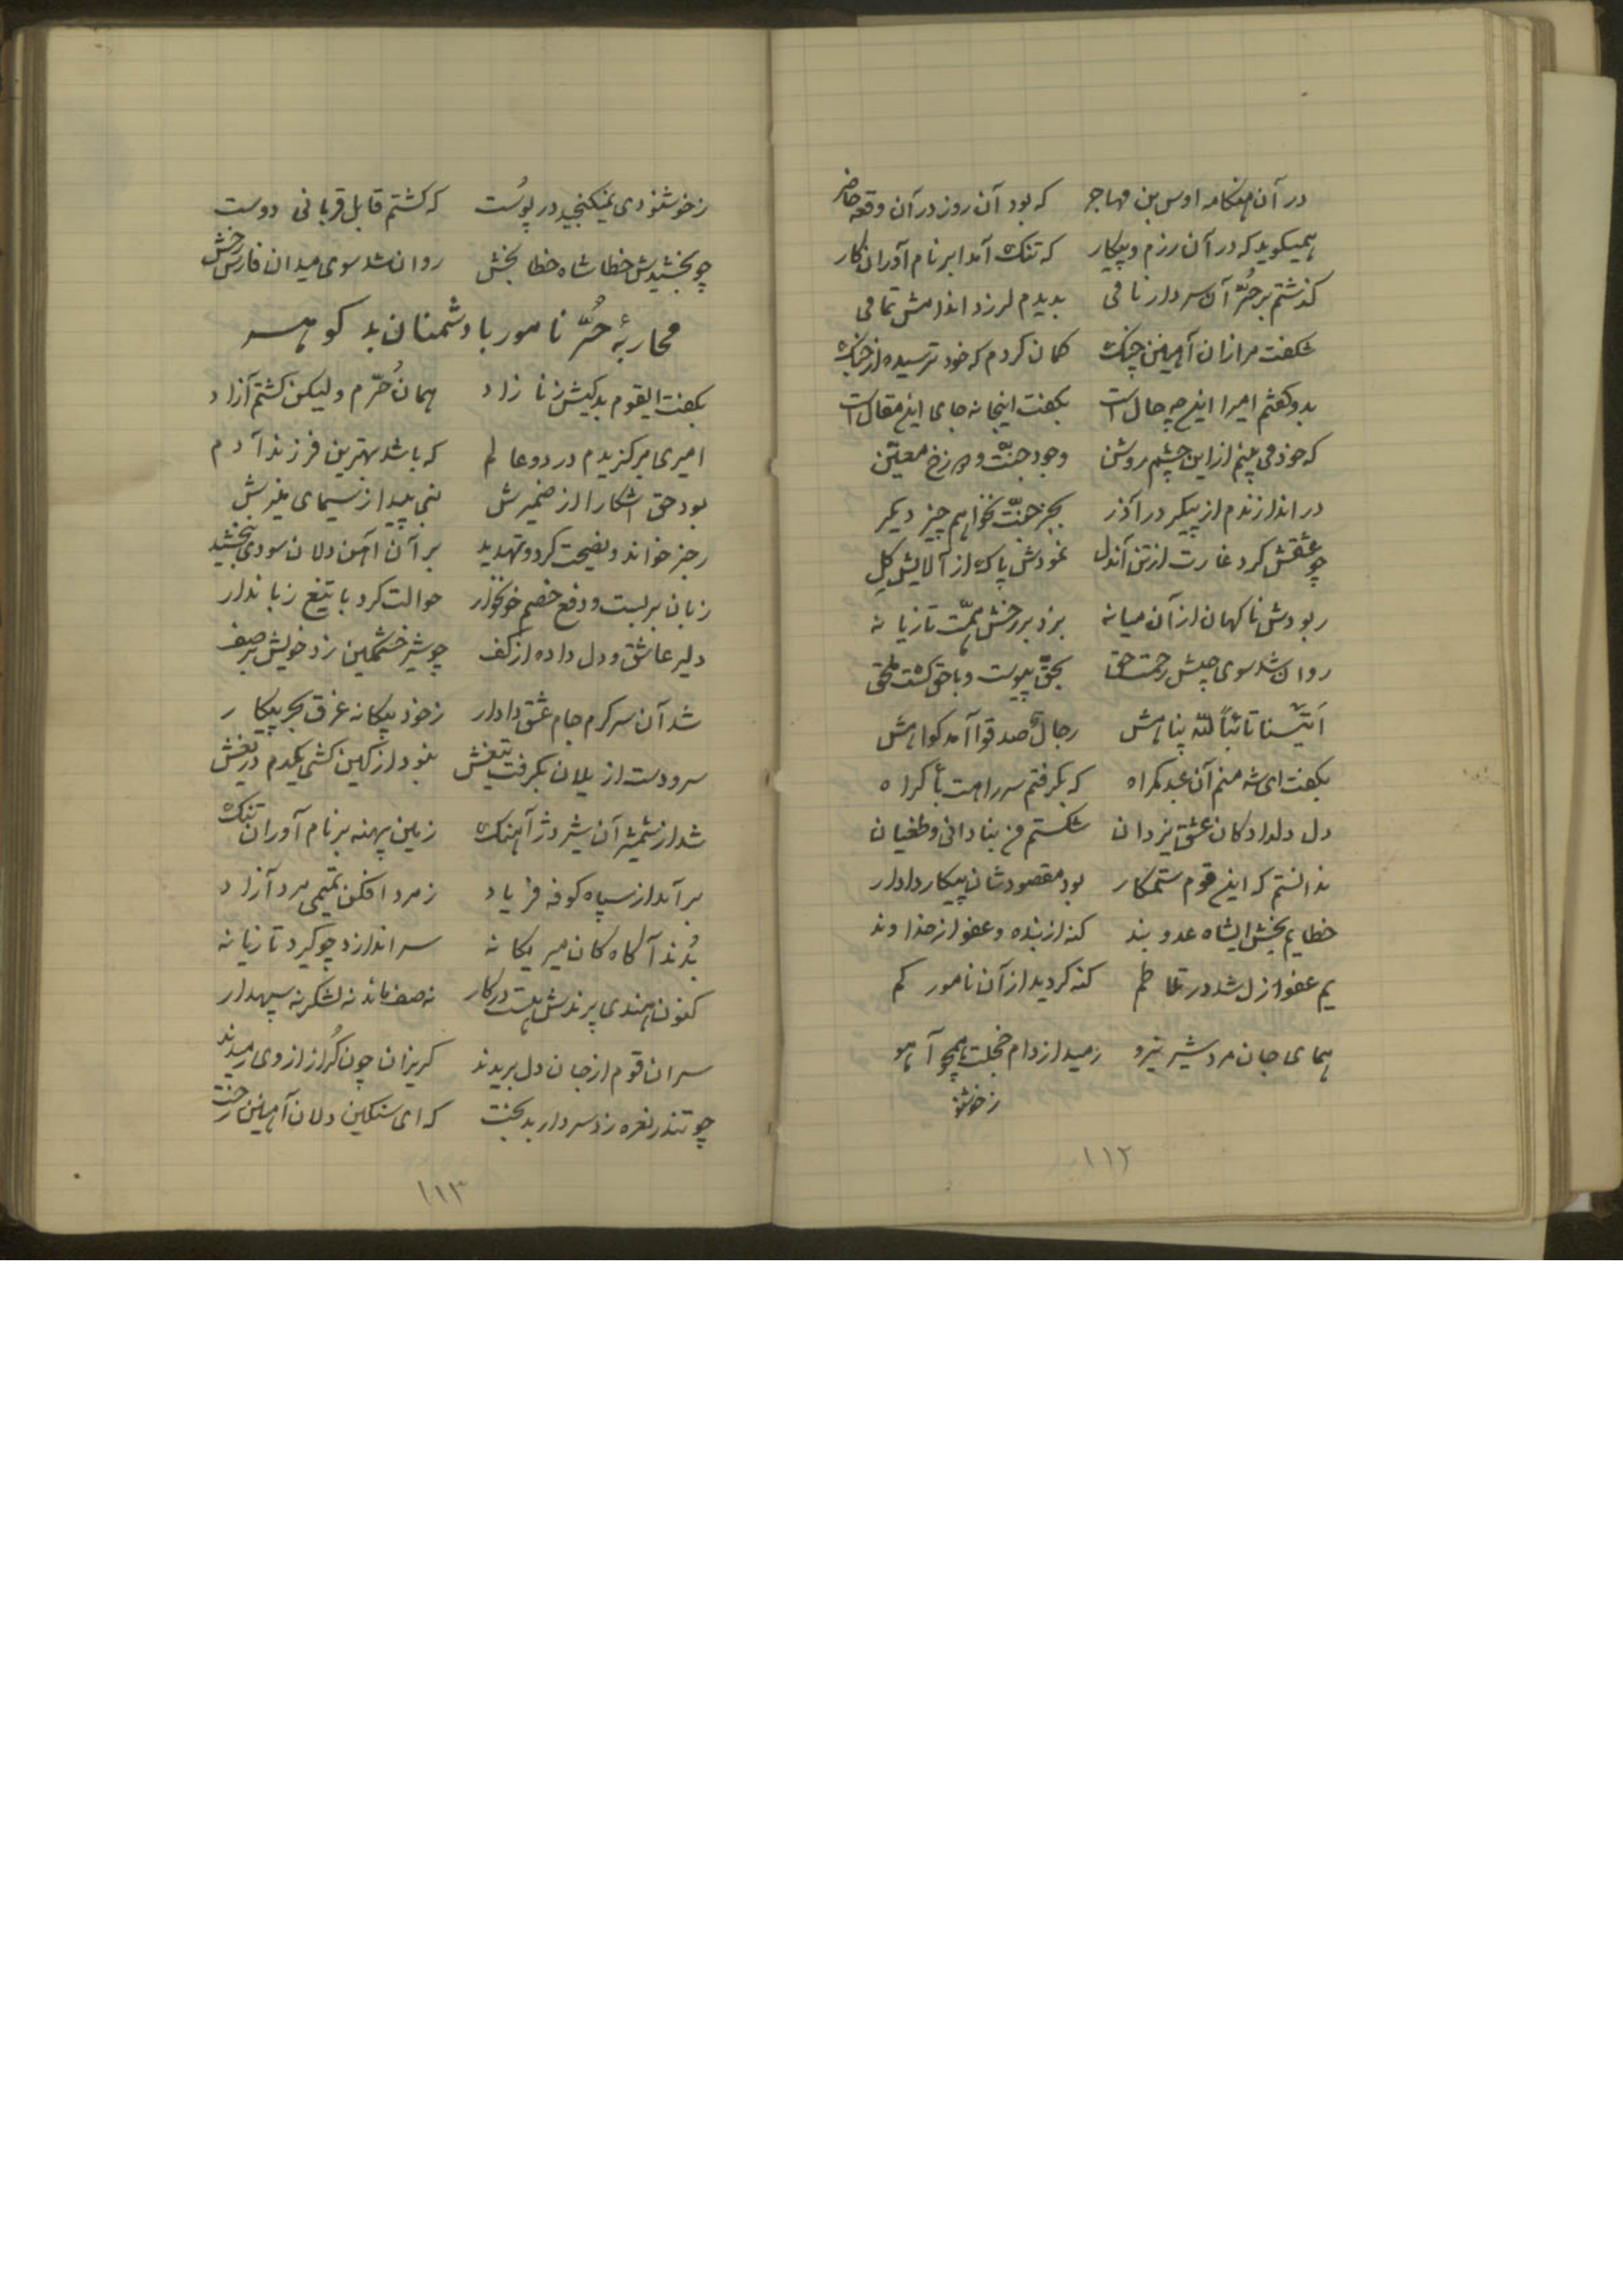 در آن هنکامه اوس بن مهاجر که بود آن روز در آن وقعه حاضر
همیکوید که در آن رزم و پیکار که تنک آمد ابر نام آوران کار
کذشتم بر حُرّ آن سردار نامی بدیدم لرزد اندامش تمامی
شکفت مر ازان آهنین چنک کمان کردم که خود ترسیده از جنک
بدو کفتم امیرا این چه حال است بکفت اینجا نه جای این مقال است
که خود می بینم از این چشم روشن وجود جنّت و دوزخ معیّن
در اندازندم از پیکر در آذر بجز جنّت نخواهم چیز دیکر
چو عشقش کرد غارت از تن آندل نمودش پاک از آلایش کِل
ربودش ناکهان از آن میانه بزد بر رخش همّت تازیانه
روان شد سوی جیش رحمت حق بحقّ پیوست و باحق کشت ملحق
اَتَیْنا تائباً للّه پناهش رجالٌ صدقوا آمد کواهش
بکفت ای شه منم آن عبد کمراه که بکرفتم سر راهت باکراه
دل دلدادکان عشق یزدان شکستم من بنادانی و طغیان
ندانستم که این قوم ستمکار بود مقصودشان پیکار دادار
خطایم بخش ایشاه عدو بند کنه از بنده و عفو از خداوند
یم عفو ازل شد در تلاطم کنه کردید از آن نامور کم
همای جان مرد شیر نیرو رمید از دام خجلت همچو آهو
زخوشنو
۱۱۲
زخوشنودی نمیکنجید در پوُست که کشتم قابل قربانی دوست
چو بخشیدش خطا شاه خطا بخش روان شد سوی میدان فارس رخش
محاربهٔ حُرّ نامور با دشمنان بد کوهر
بکفت ایقوم بدکیش زنا زاد همان حُرّم ولیکن کشتم آزاد
امیری برکزیدم در دو عالم که باشد بهترین فرزند آدم
بود حق اشکارا از ضمیرش نبی پیدا ز سیمای منیرش
رجز خواند و نصیحت کرد و تهدید بر آن آهن دلان سودی نبخشید
زبان بر بست و دفع خصم خونخوار حوالت کرد با تیغ زباندار
دلیر عاشق و دل داده از کف چو شیر خشمکین زد خویش بر صف
شد آن سرکرم جام عشق دادار ز خود بیکانه غرق بحر پیکار
سر و دست از یلان بکرفت تیغش نبود از کین کشی یکدم دریغش
شد از شمشیر آن شیر دژ آهنک زمین پهنه بر نام آوران تنک
بر آمد از سپاه کوفه فریاد ز مرد افکن تمیمی مرد آزاد
بُدند آکاه کان میر یکانه سر اندازد چو کیرد تازیانه
کنون هندی پرندش هست در کار نه صف ماند نه لشکر نه سپهدار
سران قوم از جان دل بریدند کریزان چون کُراز از وی رمیدند
چو تندر نعره زد سردار بدبخت که ای سنکین دلان آهنین رخت
۱۱۳